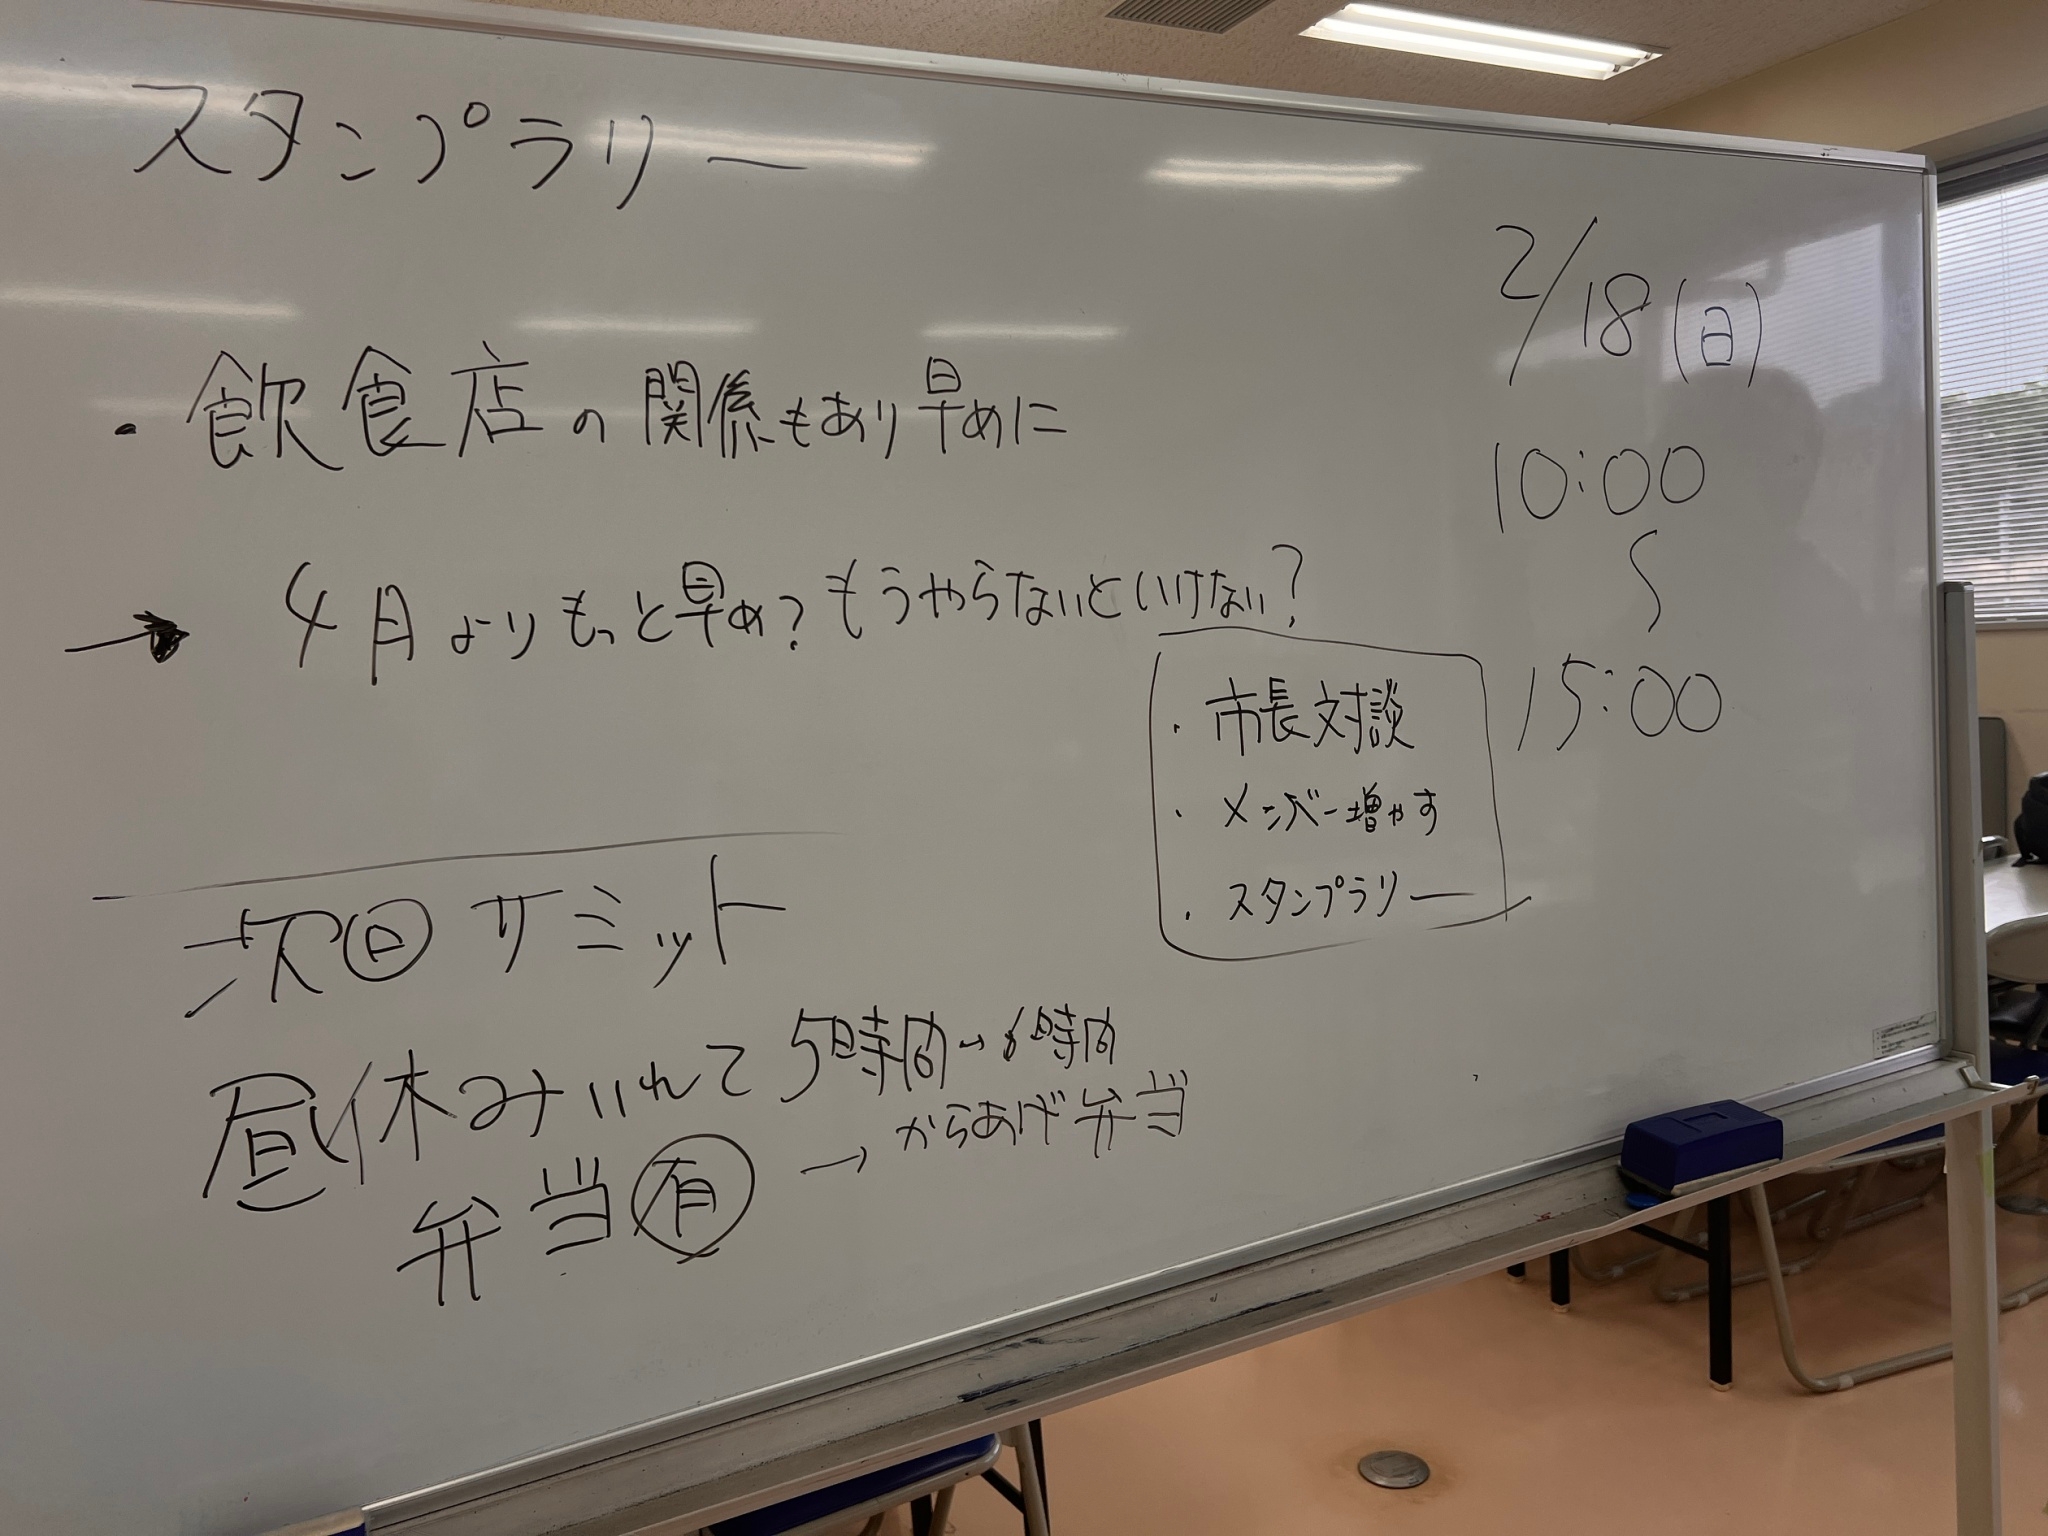 スタンプラリー
・飲食店の関係もあり早めに
→ 4月よりもっと早め?もうやらないといけない?
2/18(日)
10:00
〜
15:00
・市長対談
・メンバー増やす
・スタンプラリー
次回サミット
昼休みいれて5時間→6時間
弁当有 → からあげ弁当